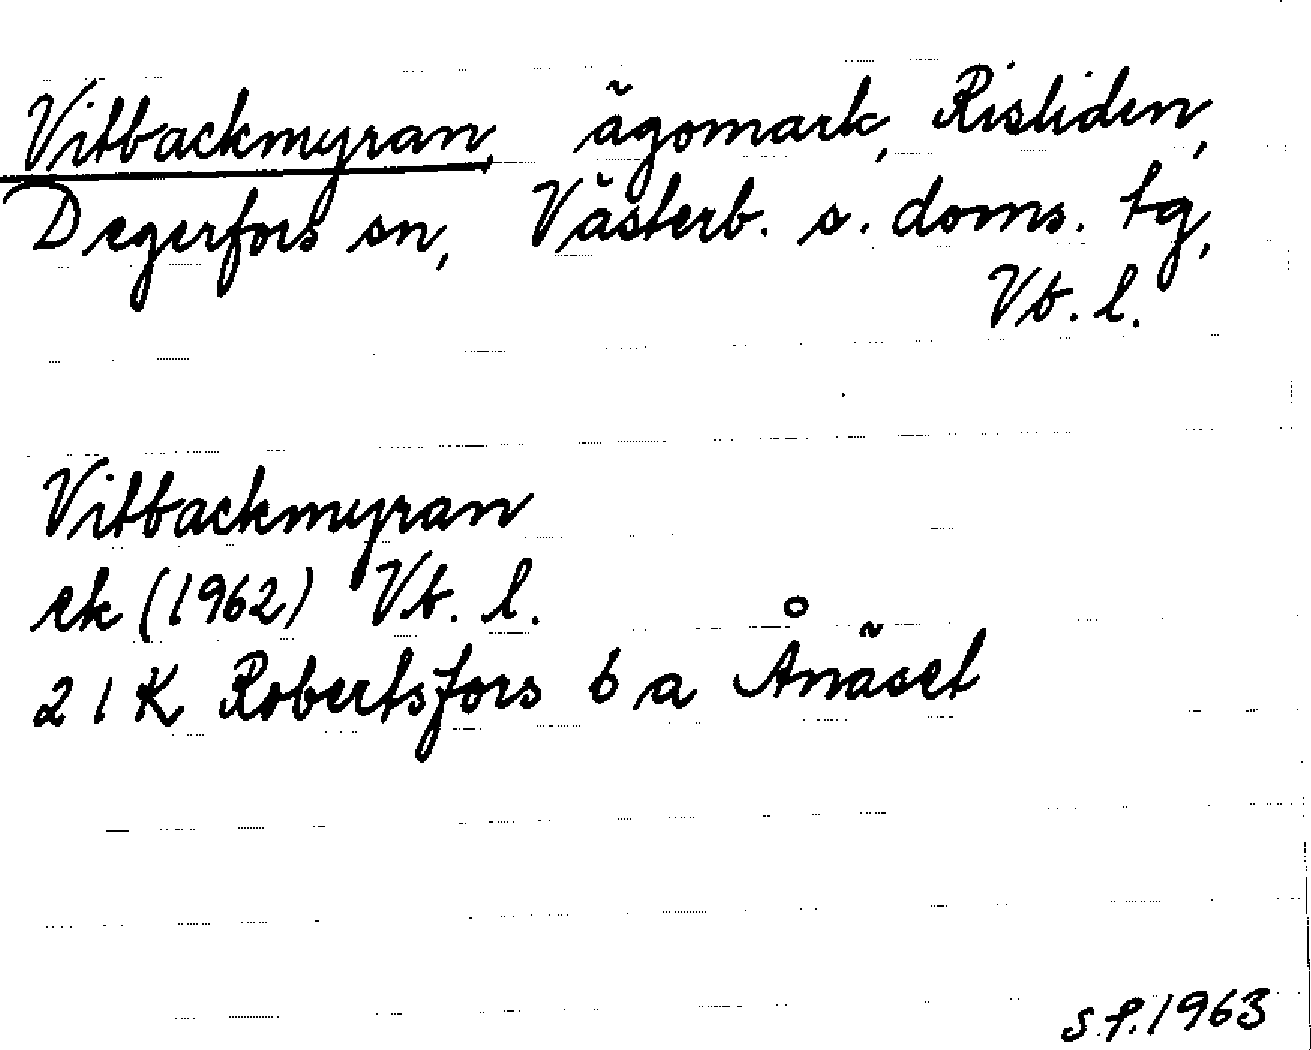 Vitbackmyran, ägomark, Risliden,
Degerfors sn, Västerb. s. doms. tg,
Vb. l.
Vitbackmyran
ek (1962) Vb. l.
21K Robertsfors 6 a Ånäset
s.f. 1963